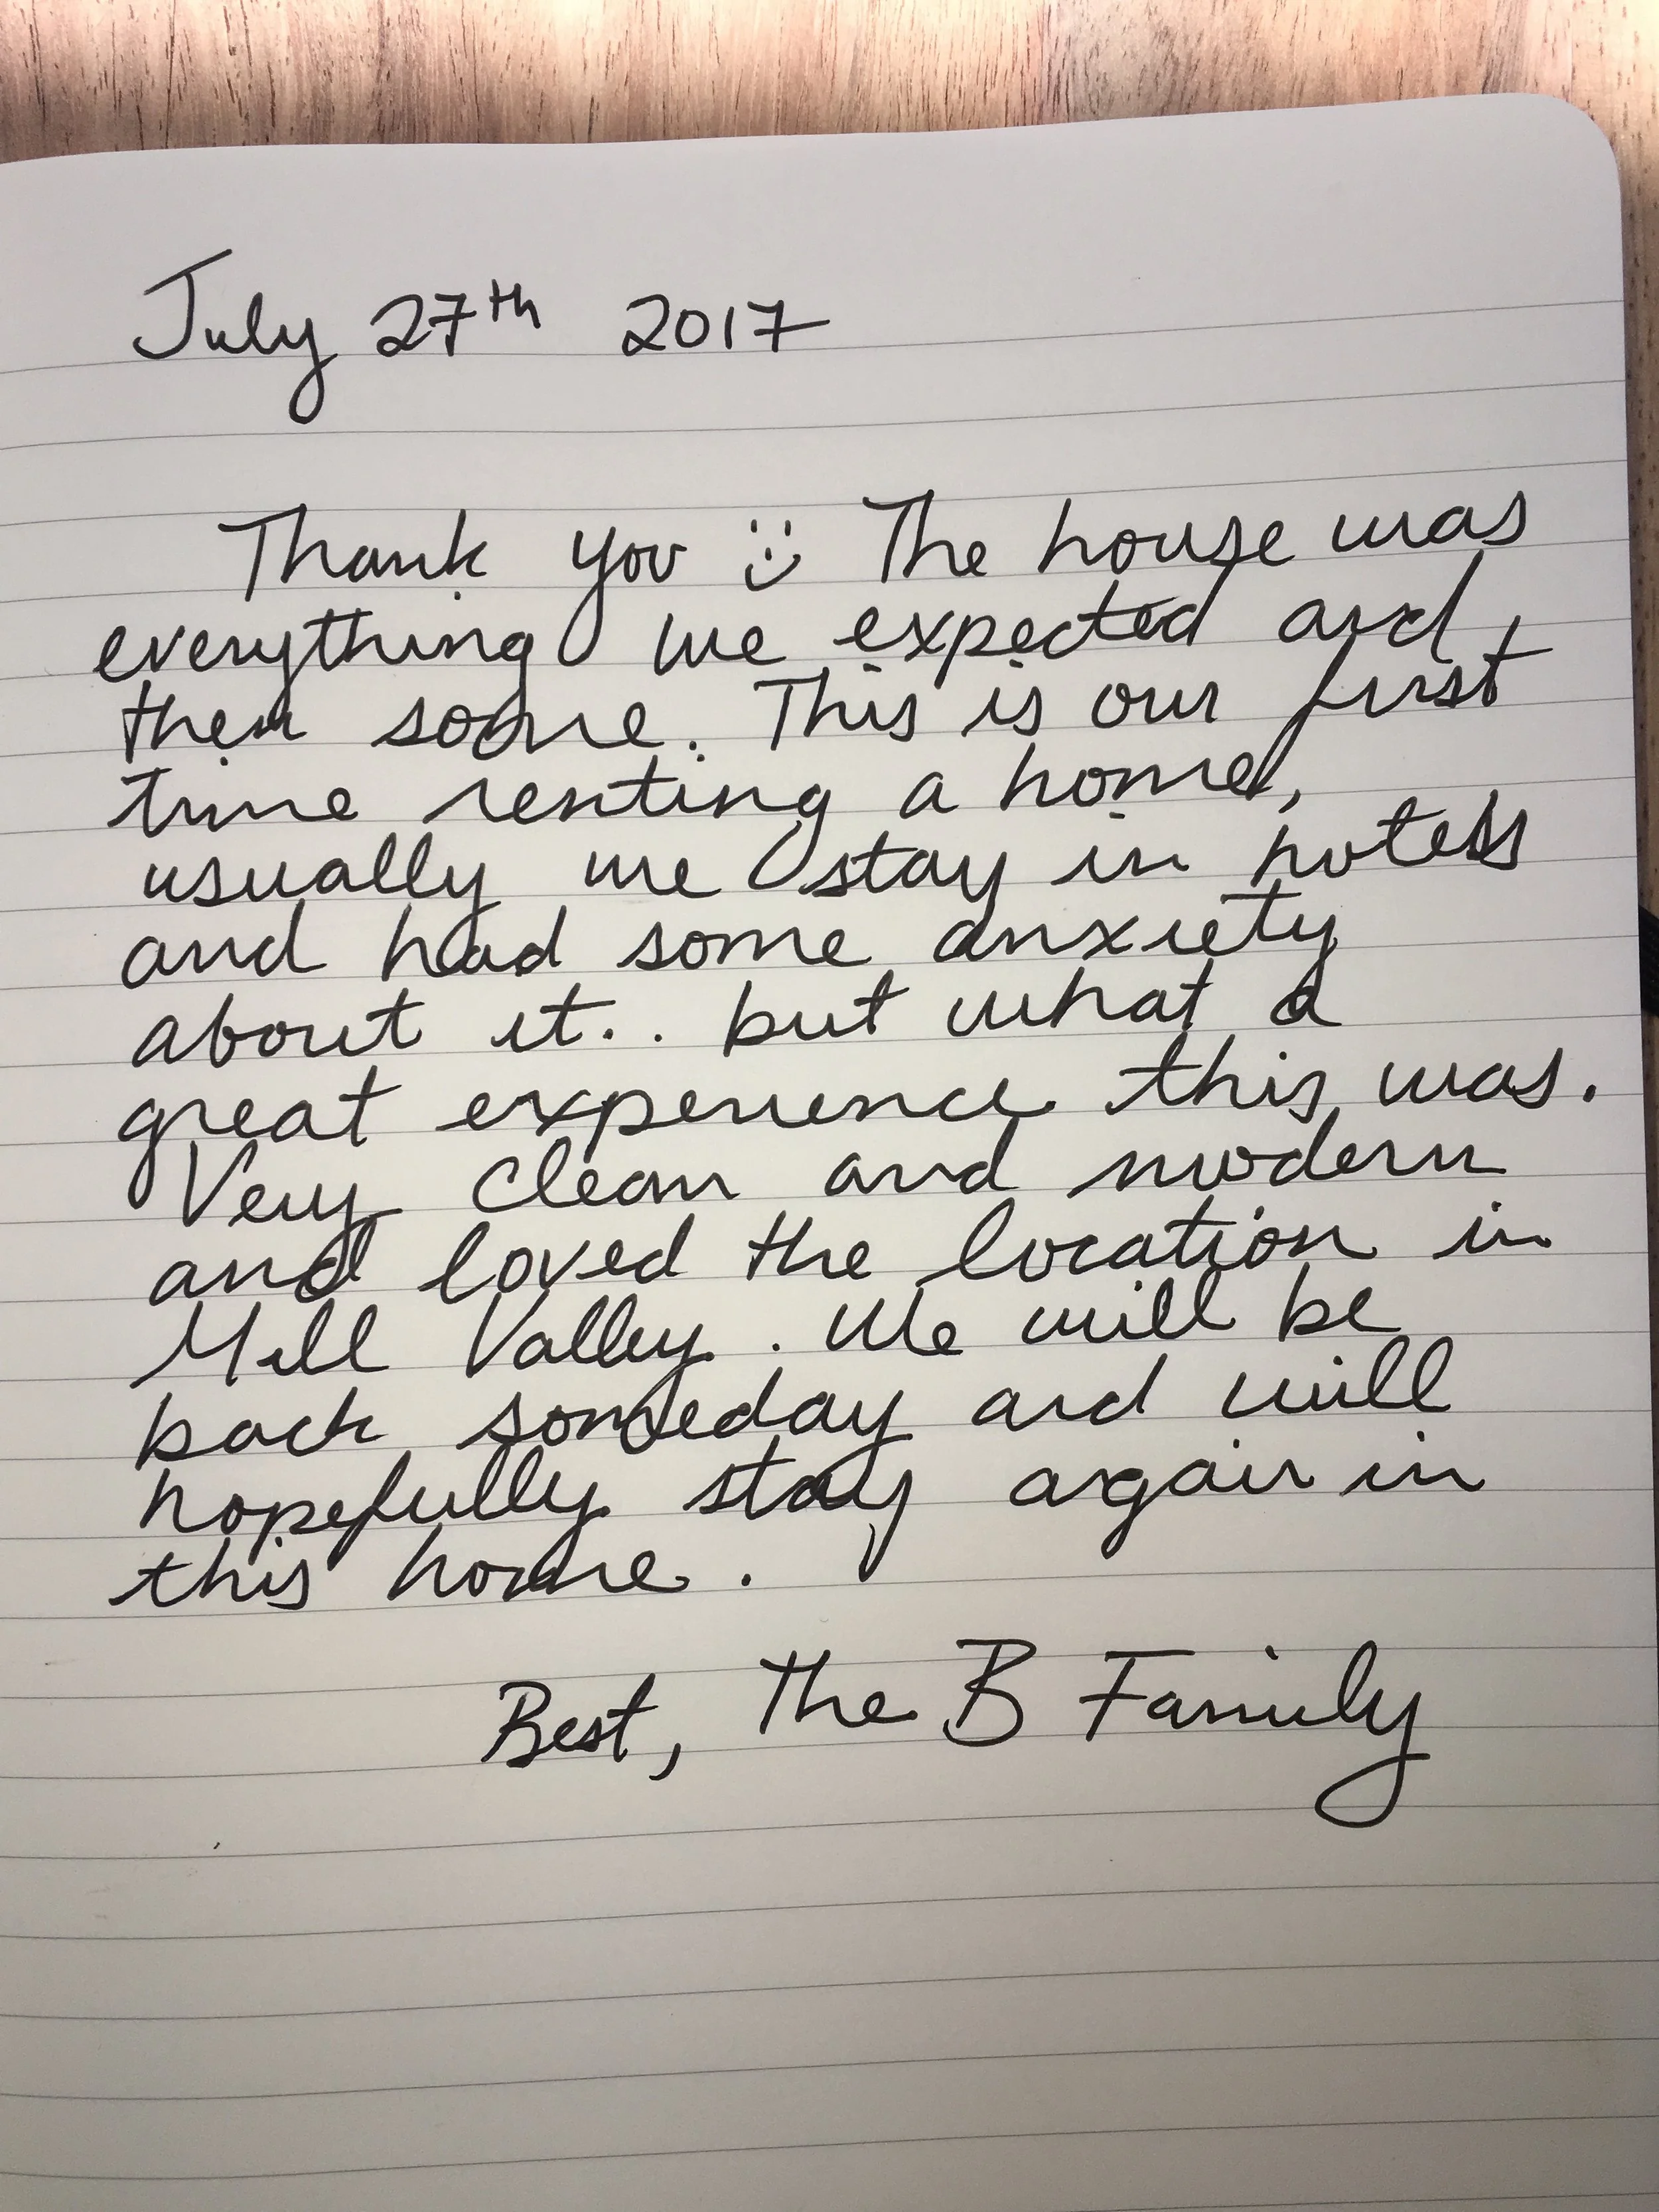 July 27th 2017
Thank you :) The house was
everything we expected and
then some. This is our first
time renting a home,
usually we stay in hotels
and had some anxiety
about it.. but what a
great experience this was.
Very clean and modern
and loved the location in
Mill Valley. We will be
back someday and will
hopefully stay again in
this home.
Best, The B Family